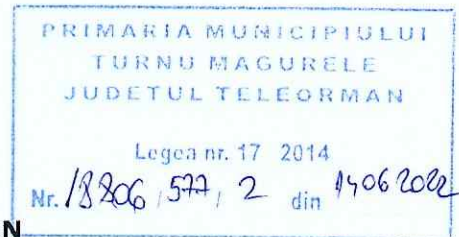 PRIMARIA MUNICIPIULUI
TURNU MAGURELE
JUDETUL TELEORMAN
Legea nr. 17 2014
Nr. 18806 / 577 / 2 din 14062022
N